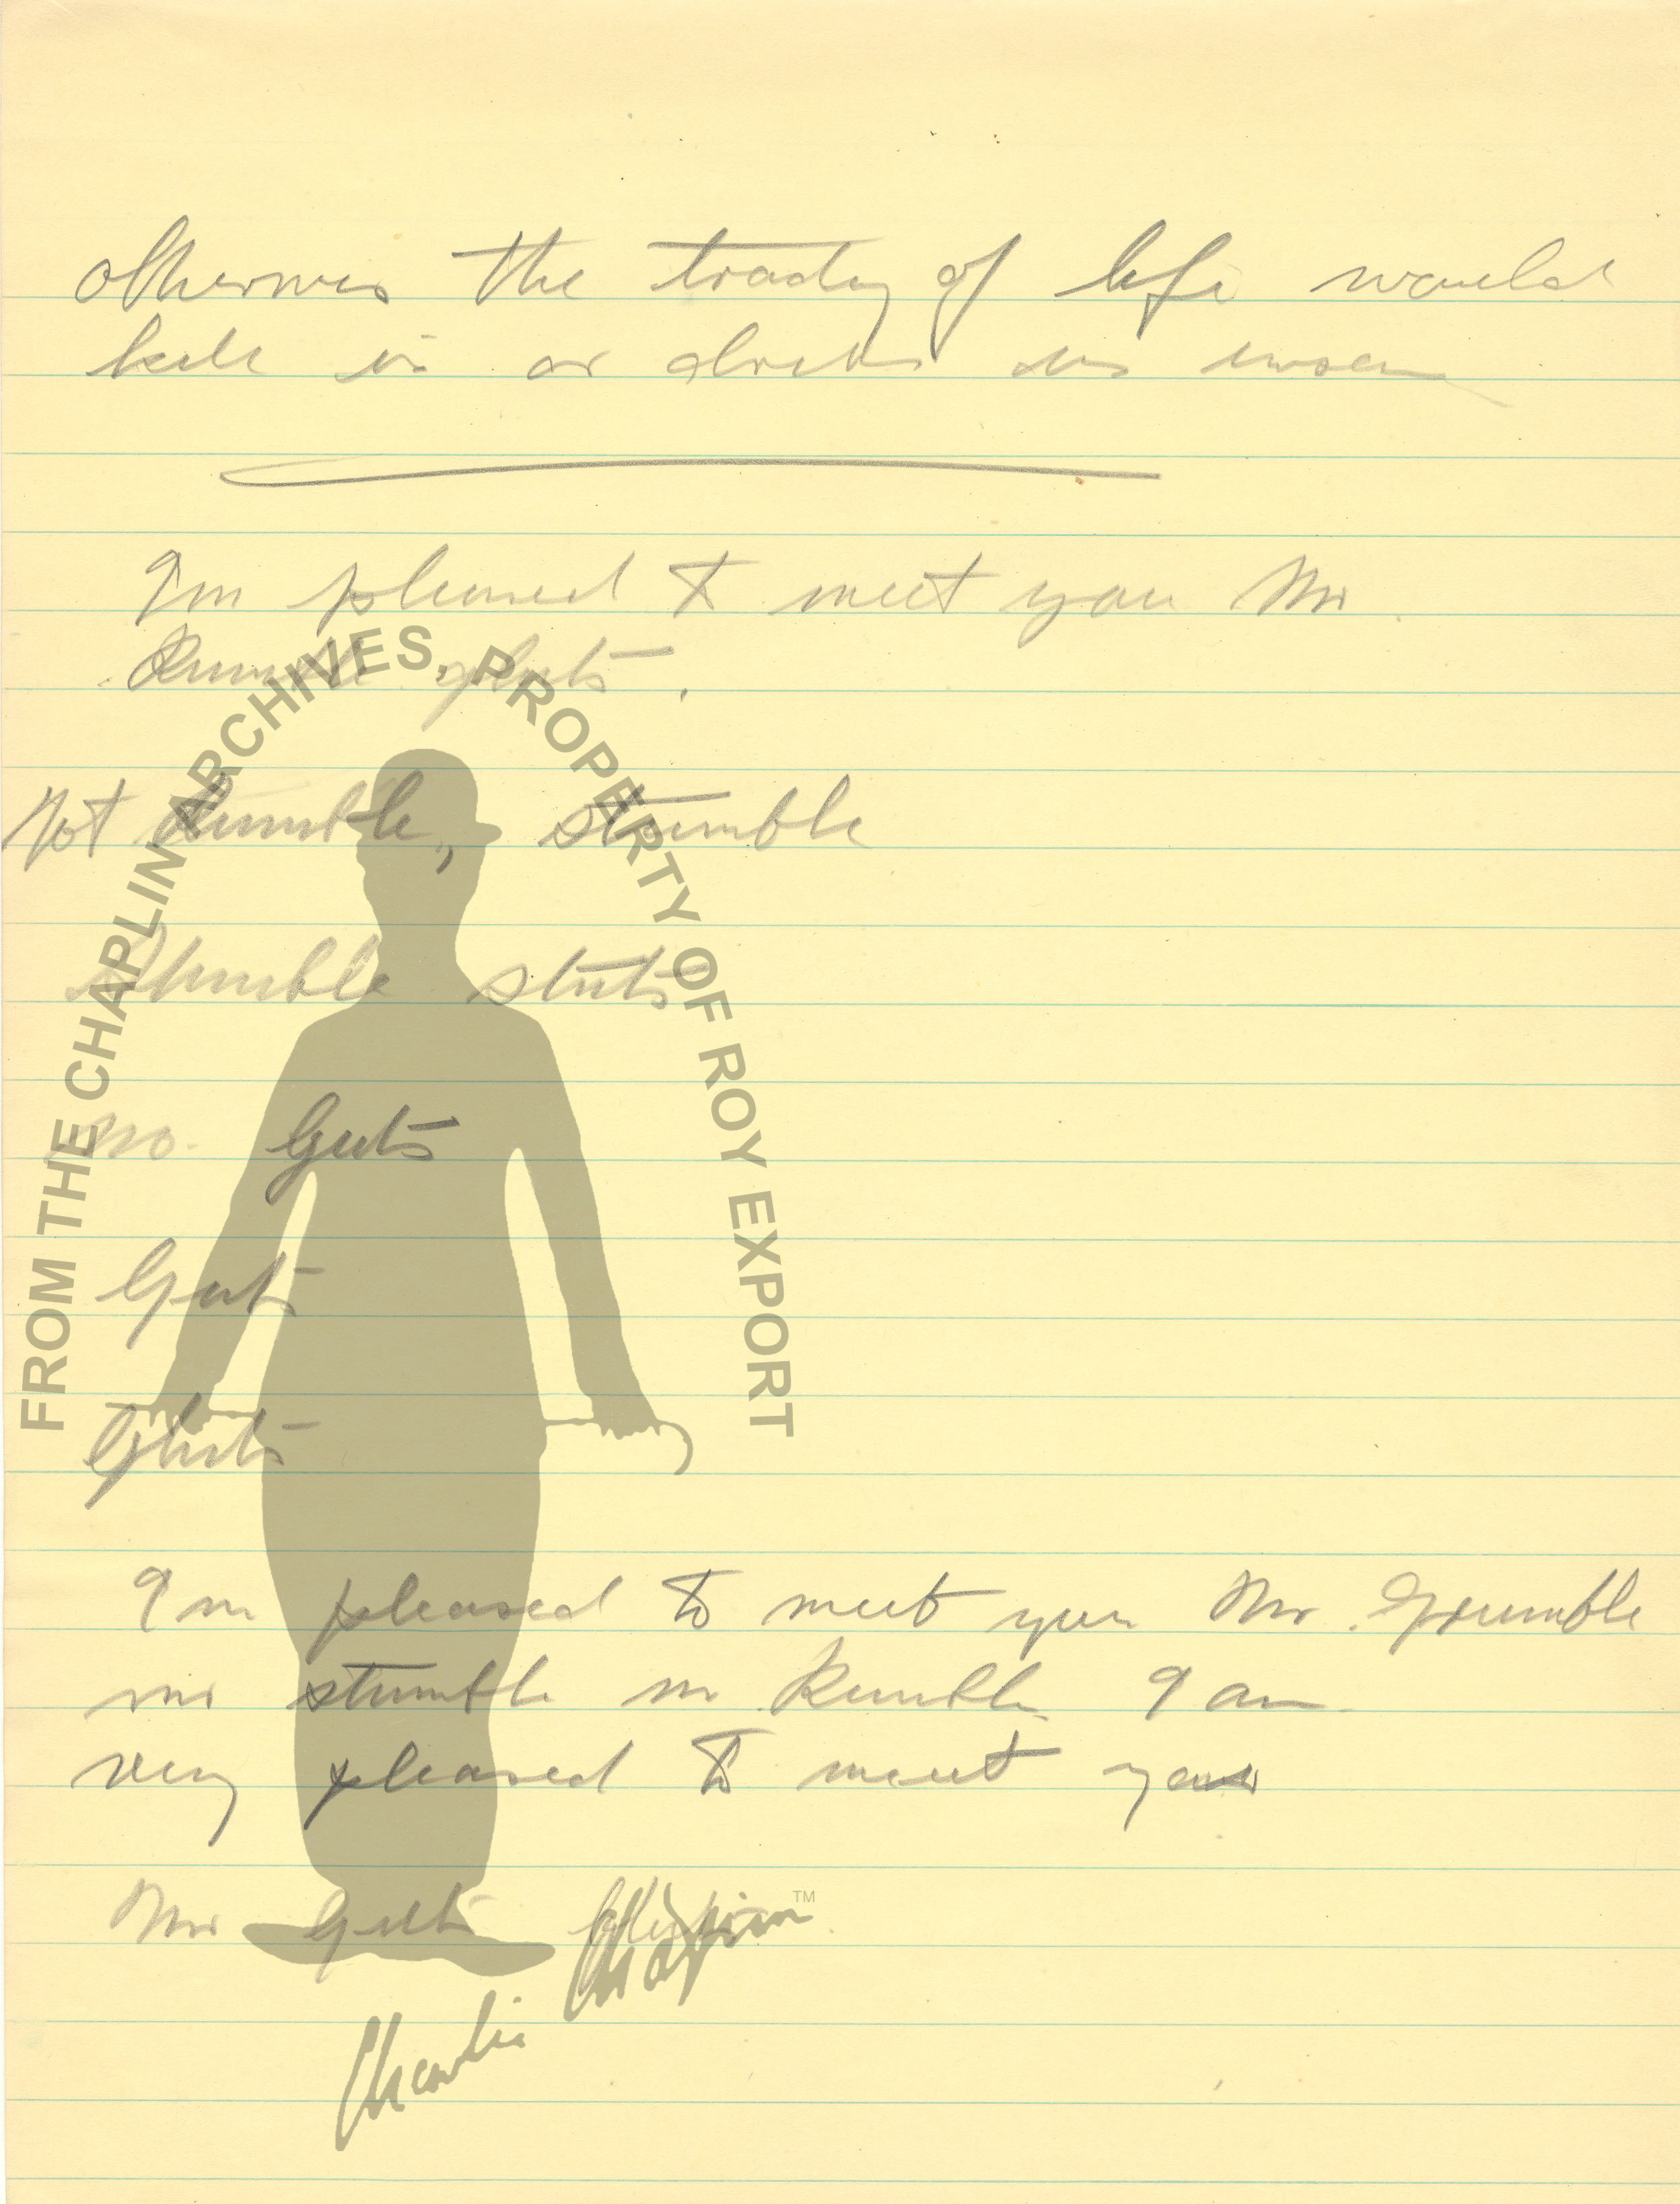 otherwis the tradey of life would
kill us or drive us insan
Im pleased to meet you Mr
Rumble gluts.
Not Rumble, stumble
Stumble stuts
no. Guts
Guts
Gluts
I m pleased to meet you Mr. Grumble
mr stumble mr Rumble I am
very pleased to meet you
Mr Guts
FROM THE CHAPLIN ARCHIVES, PROPERTY OF ROY EXPORT
Charlie Chaplin TM